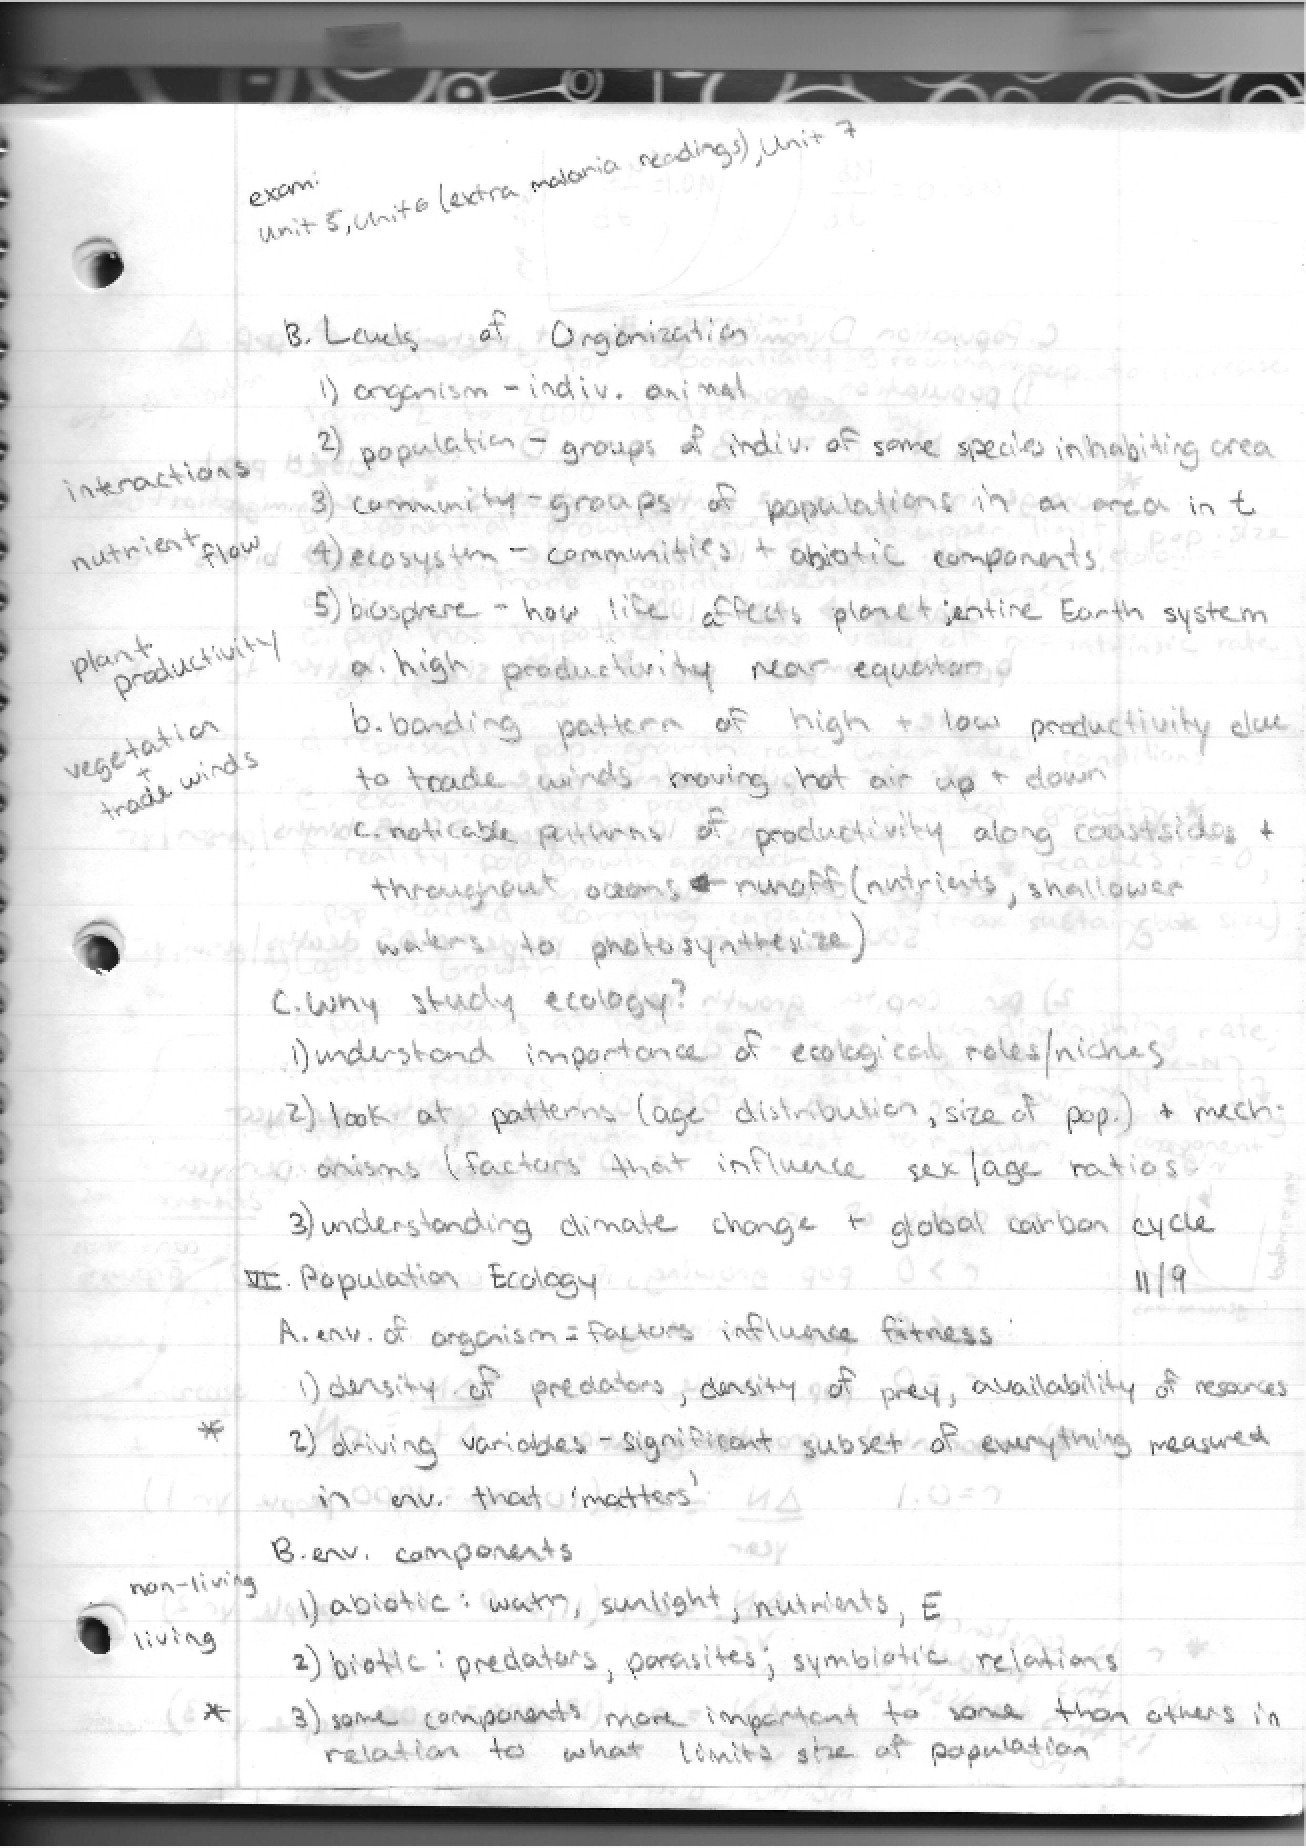 exam:
unit 5, unit 6 (extra malaria readings), unit 7
B. Levels of Organization
1) organism - indiv. animal
2) population - groups of indiv. of same species inhabiting area
interactions
3) community - groups of populations in an area in t
nutrient flow
4) ecosystem - communities + abiotic components
5) biosphere - how life affects planet; entire Earth system
plant productivity
a. high productivity near equator
b. banding pattern of high + low productivity due
vegetation + trade winds
to trade winds moving hot air up + down
c. noticable patterns of productivity along coastsides +
throughout oceans ← runoff (nutrients, shallower
waters to photosynthesize)
C. Why study ecology?
1) understand importance of ecological roles/niches
2) look at patterns (age distribution, size of pop.) + mech-
anisms (factors that influence sex/age ratios
3) understanding climate change + global carbon cycle
VI. Population Ecology 11/9
A. env. of organism = factors influence fitness
1) density of predators, density of prey, availability of resources
* 2) driving variables - significant subset of everything measured
in env. that 'matters'
B. env. components
non-living
1) abiotic: watr, sunlight, nutrients, E
living
2) biotic: predators, parasites; symbiotic relations
* 3) some components more important to some than others in
relation to what limits size of population